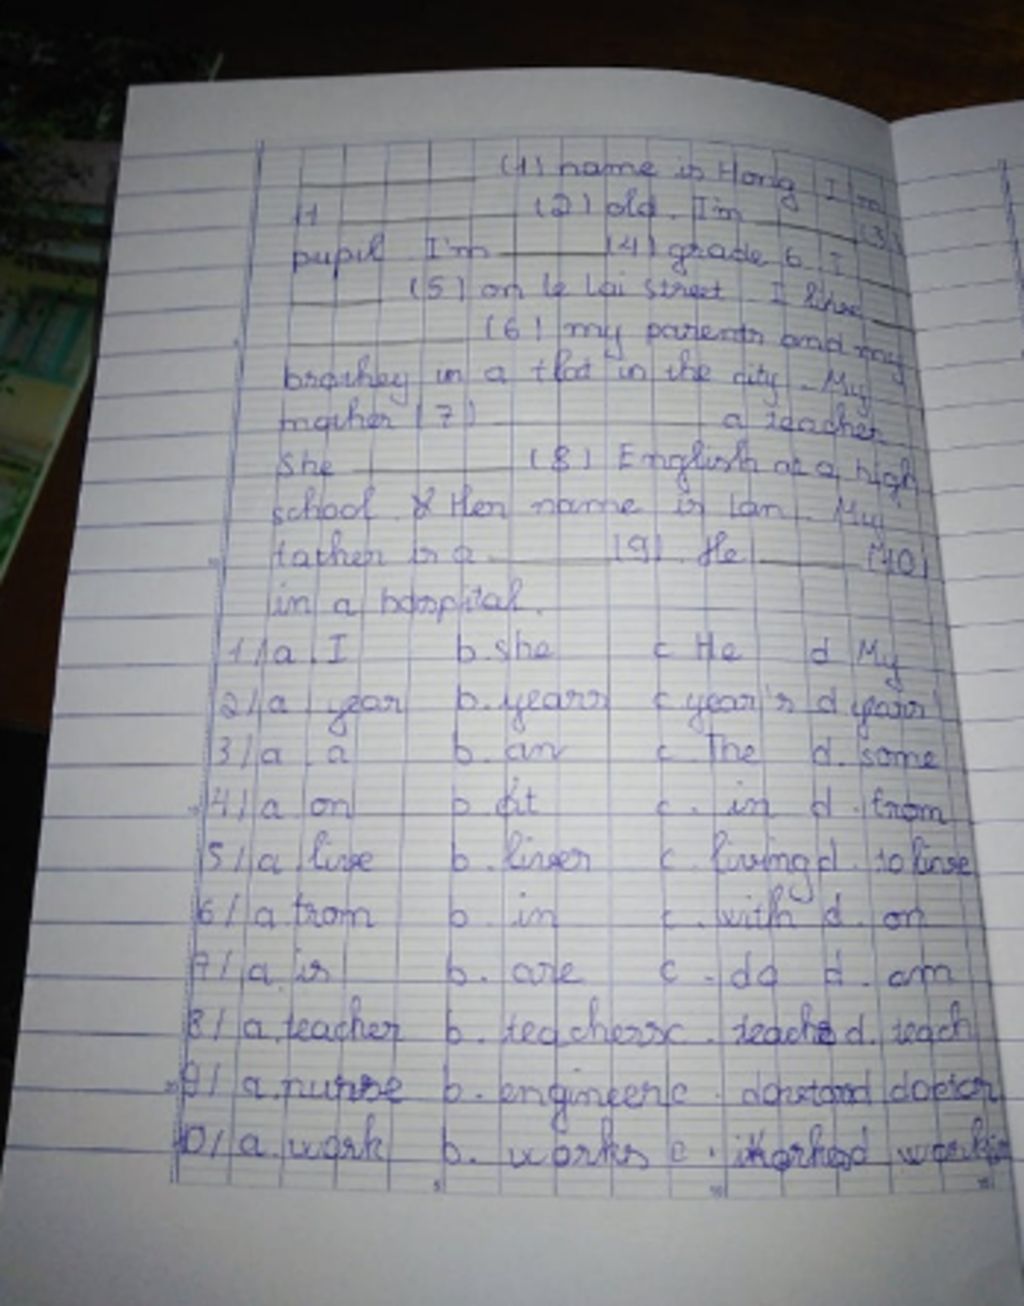 (1) name is Hong I'm
11 (2) old. I'm (3)
pupil I'm (4) grade 6. I
(5) on Le Lai street I live
(6) my parents and my
in a flat in the city. My
mother (7) a teacher
She (8) English at a high
school. Her name is Lan. My
father is a (9). He (10)
in a hospital.
1/ a. I b. she c. He d. My
2/ a. year b. years c. year's d. years'
3/ a. a b. an c. The d. some
4/ a. on b. at c. in d. from
5/ a. live b. lives c. living d. to live
6/ a. from b. in c. with d. on
7/ a. is b. are c. do d. am
8/ a. teacher b. teachers c. d. teach
9/ a. nurse b. engineer c. doctor
10/ a. work b. works c. d. working